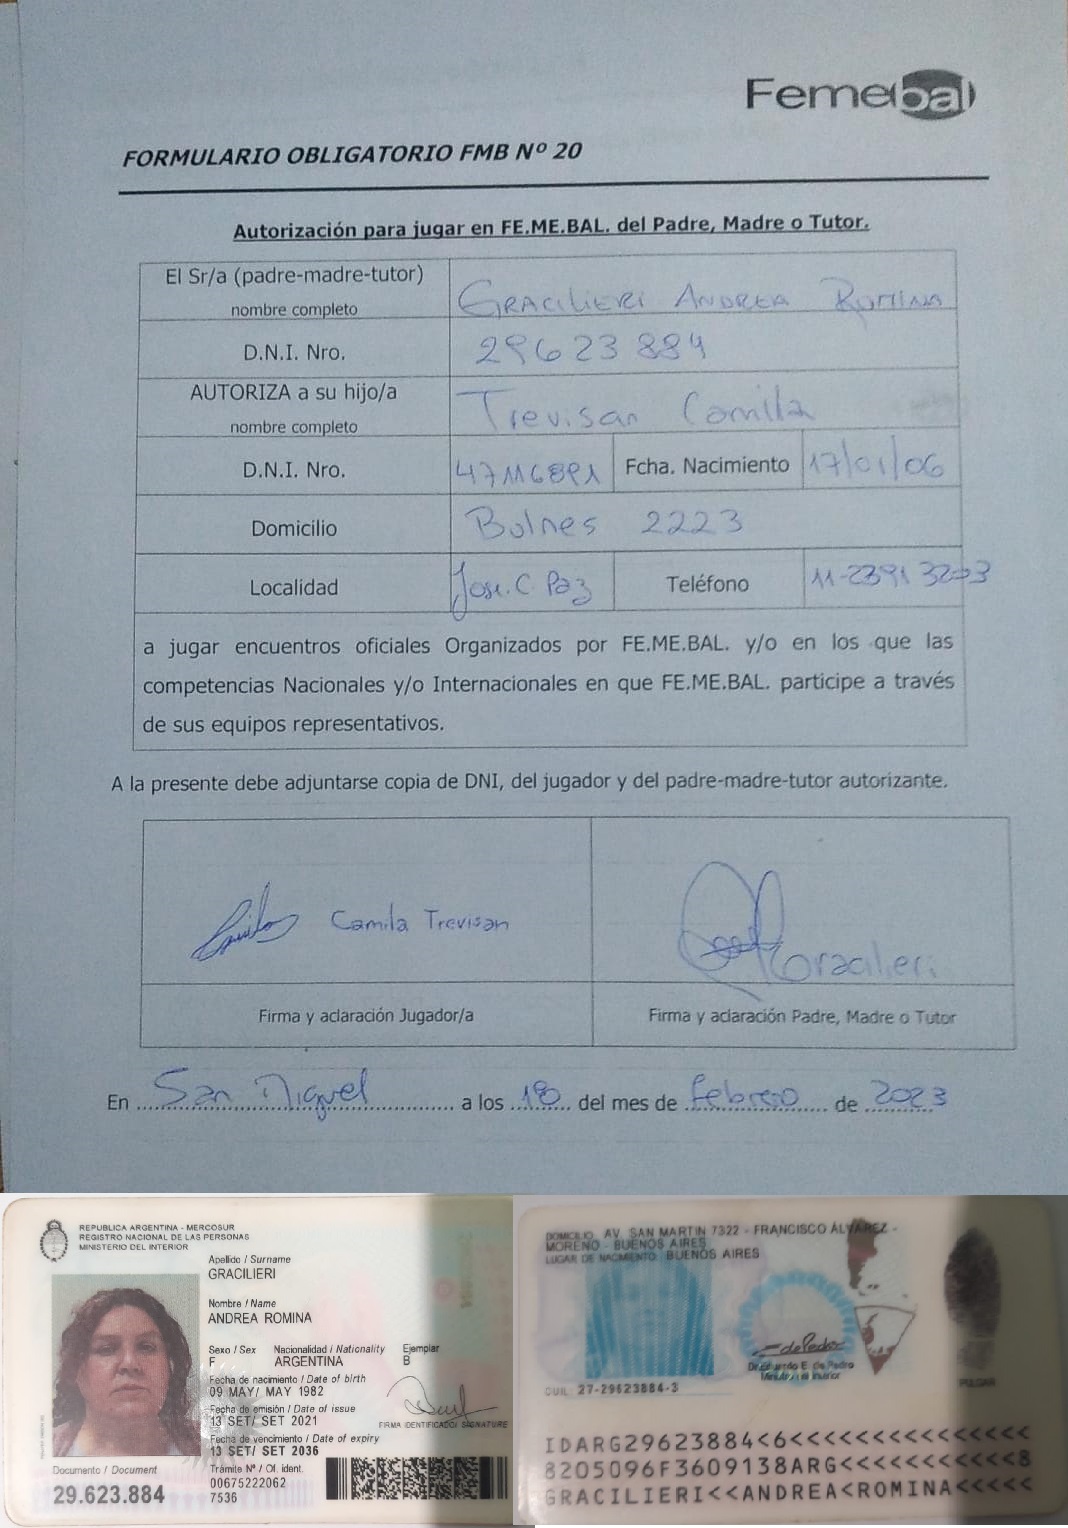 Femebal
FORMULARIO OBLIGATORIO FMB Nº 20
Autorización para jugar en FE.ME.BAL. del Padre, Madre o Tutor.
El Sr/a (padre-madre-tutor)
nombre completo
GRACILIERI ANDREA ROMINA
D.N.I. Nro.
29623884
AUTORIZA a su hijo/a
nombre completo
Trevisan Camila
D.N.I. Nro.
47116891
Fcha. Nacimiento
17/01/06
Domicilio
Bulnes 2223
Localidad
Jose. C. Paz
Teléfono
a jugar encuentros oficiales Organizados por FE.ME.BAL. y/o en los que las
competencias Nacionales y/o Internacionales en que FE.ME.BAL. participe a través
de sus equipos representativos.
A la presente debe adjuntarse copia de DNI, del jugador y del padre-madre-tutor autorizante.
Camila Trevisan
Gracilieri
Firma y aclaración Jugador/a
Firma y aclaración Padre, Madre o Tutor
En San Miguel a los 18 del mes de febrero de 2023
REPUBLICA ARGENTINA - MERCOSUR
REGISTRO NACIONAL DE LAS PERSONAS
MINISTERIO DEL INTERIOR
Apellido / Surname
GRACILIERI
Nombre / Name
ANDREA ROMINA
Sexo / Sex Nacionalidad / Nationality Ejemplar
F ARGENTINA B
Fecha de nacimiento / Date of birth
09 MAY/ MAY 1982
Fecha de emisión / Date of issue
13 SET/ SET 2021
FIRMA IDENTIFICADO/ SIGNATURE
Fecha de vencimiento / Date of expiry
13 SET/ SET 2036
Documento / Document
29.623.884
Trámite Nº / Of. ident.
00675222062
7536
DOMICILIO: AV. SAN MARTIN 7322 - FRANCISCO ÁLVAREZ -
MORENO - BUENOS AIRES
LUGAR DE NACIMIENTO: BUENOS AIRES
Dr. Eduardo E. de Pedro
Ministro del Interior
CUIL: 27-29623884-3
PULGAR
IDARG29623884<6<<<<<<<<<<<<<<<
8205096F3609138ARG<<<<<<<<<<<8
GRACILIERI<<ANDREA<ROMINA<<<<<